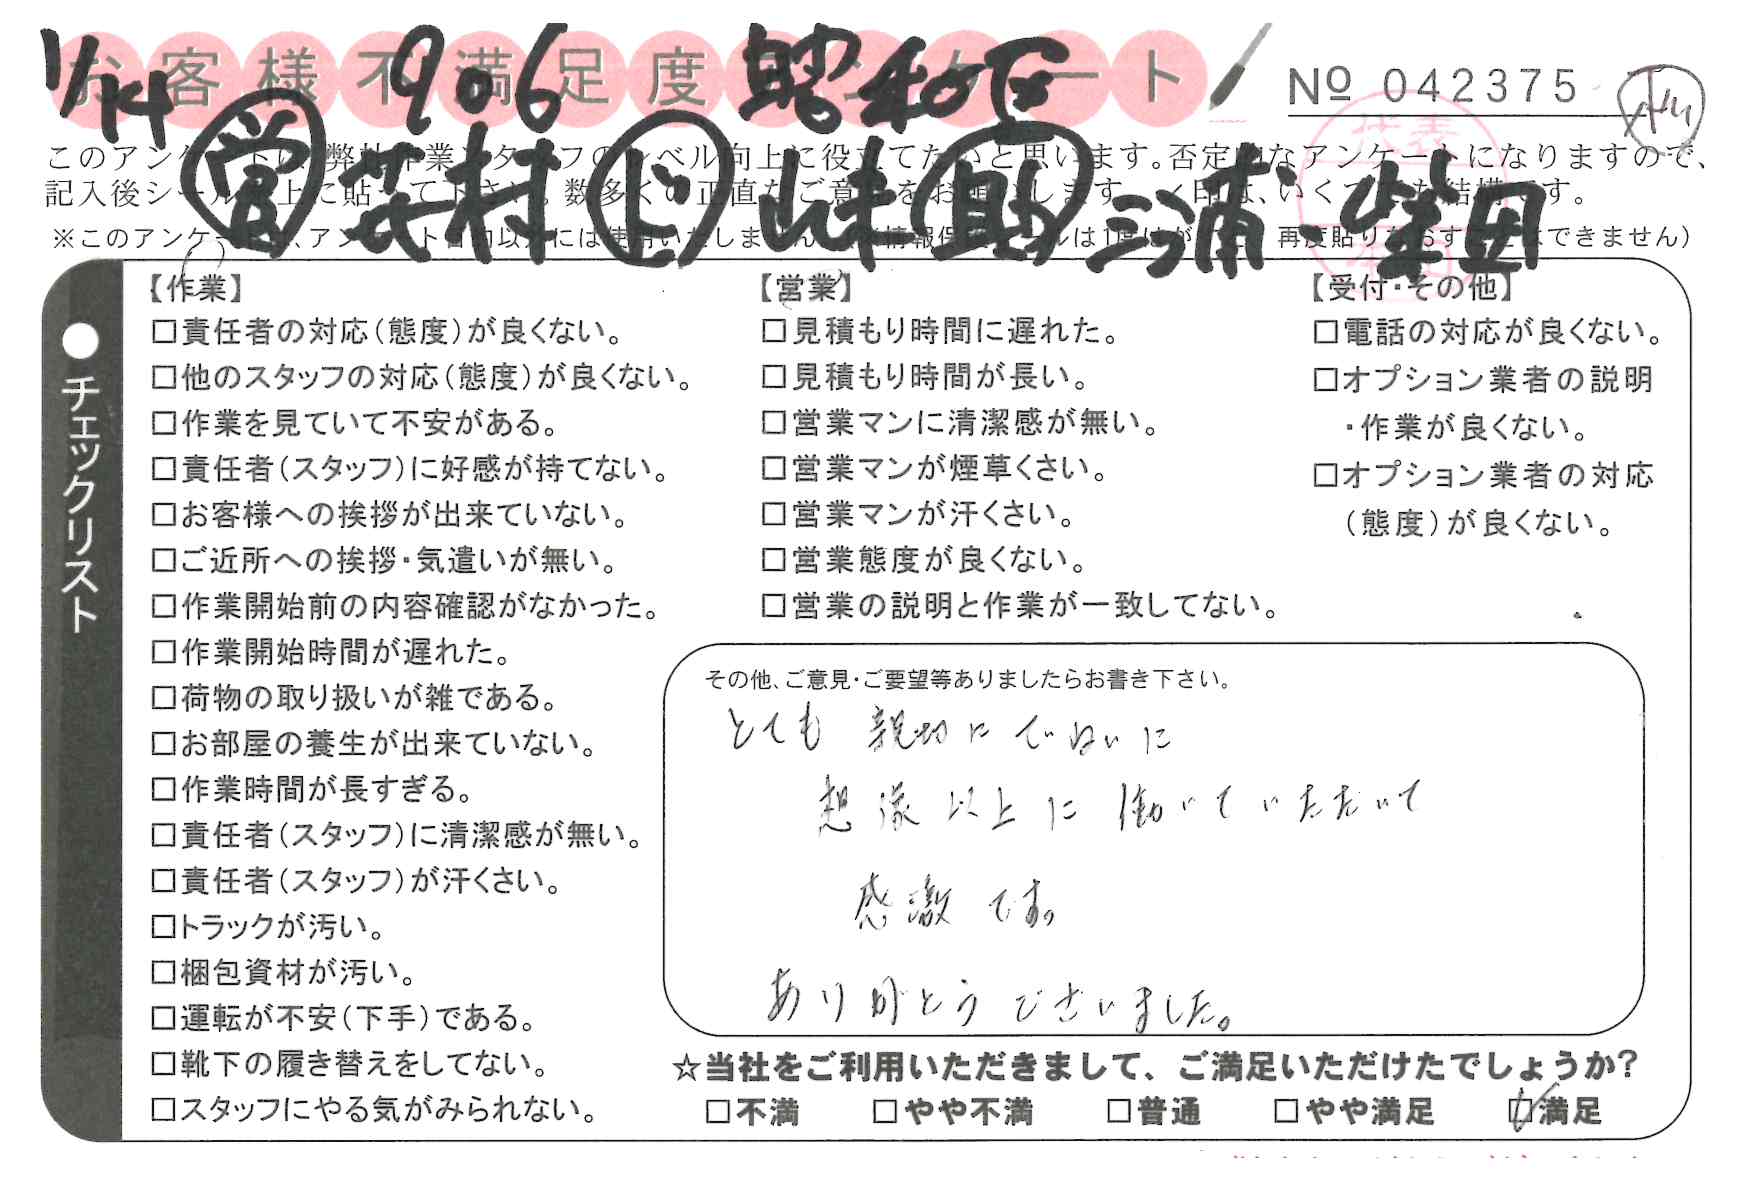 お客様不満足度アンケート
1/14 906 昭和区
No 042375
営 茂村 ド 山本 助 三浦、柴田
このアンケートは、弊社作業スタッフのレベル向上に役立てたいと思います。否定的なアンケートになりますので、
記入後シールを上に貼って下さい。数多くの正直なご意見をお願いします。✓印は、いくつでも結構です。
※このアンケートは、アンケート目的以外には使用いたしません。
再度貼りなおすことはできません）
代表
チェックリスト
【作業】
□責任者の対応（態度）が良くない。
□他のスタッフの対応（態度）が良くない。
□作業を見ていて不安がある。
□責任者（スタッフ）に好感が持てない。
□お客様への挨拶が出来ていない。
□ご近所への挨拶・気遣いが無い。
□作業開始前の内容確認がなかった。
□作業開始時間が遅れた。
□荷物の取り扱いが雑である。
□お部屋の養生が出来ていない。
□作業時間が長すぎる。
□責任者（スタッフ）に清潔感が無い。
□責任者（スタッフ）が汗くさい。
□トラックが汚い。
□梱包資材が汚い。
□運転が不安（下手）である。
□靴下の履き替えをしてない。
□スタッフにやる気がみられない。
【営業】
□見積もり時間に遅れた。
□見積もり時間が長い。
□営業マンに清潔感が無い。
□営業マンが煙草くさい。
□営業マンが汗くさい。
□営業態度が良くない。
□営業の説明と作業が一致してない。
【受付・その他】
□電話の対応が良くない。
□オプション業者の説明
・作業が良くない。
□オプション業者の対応
（態度）が良くない。
その他、ご意見・ご要望等ありましたらお書き下さい。
とても 親切に ていねいに
想像以上に 働いていただいて
感激です。
ありがとうございました。
☆当社をご利用いただきまして、ご満足いただけたでしょうか？
□不満 □やや不満 □普通 □やや満足 ☑満足